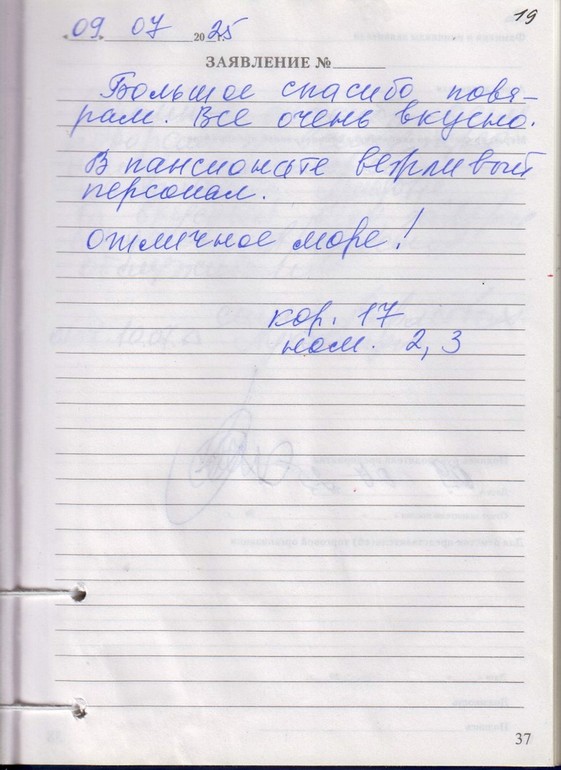 19
09 07 2025
ЗАЯВЛЕНИЕ №
Большое спасибо повя-
рам. Все очень вкусно.
В пансионате вежливый
персонал.
Отличное море!
кор. 17
ном. 2, 3
37